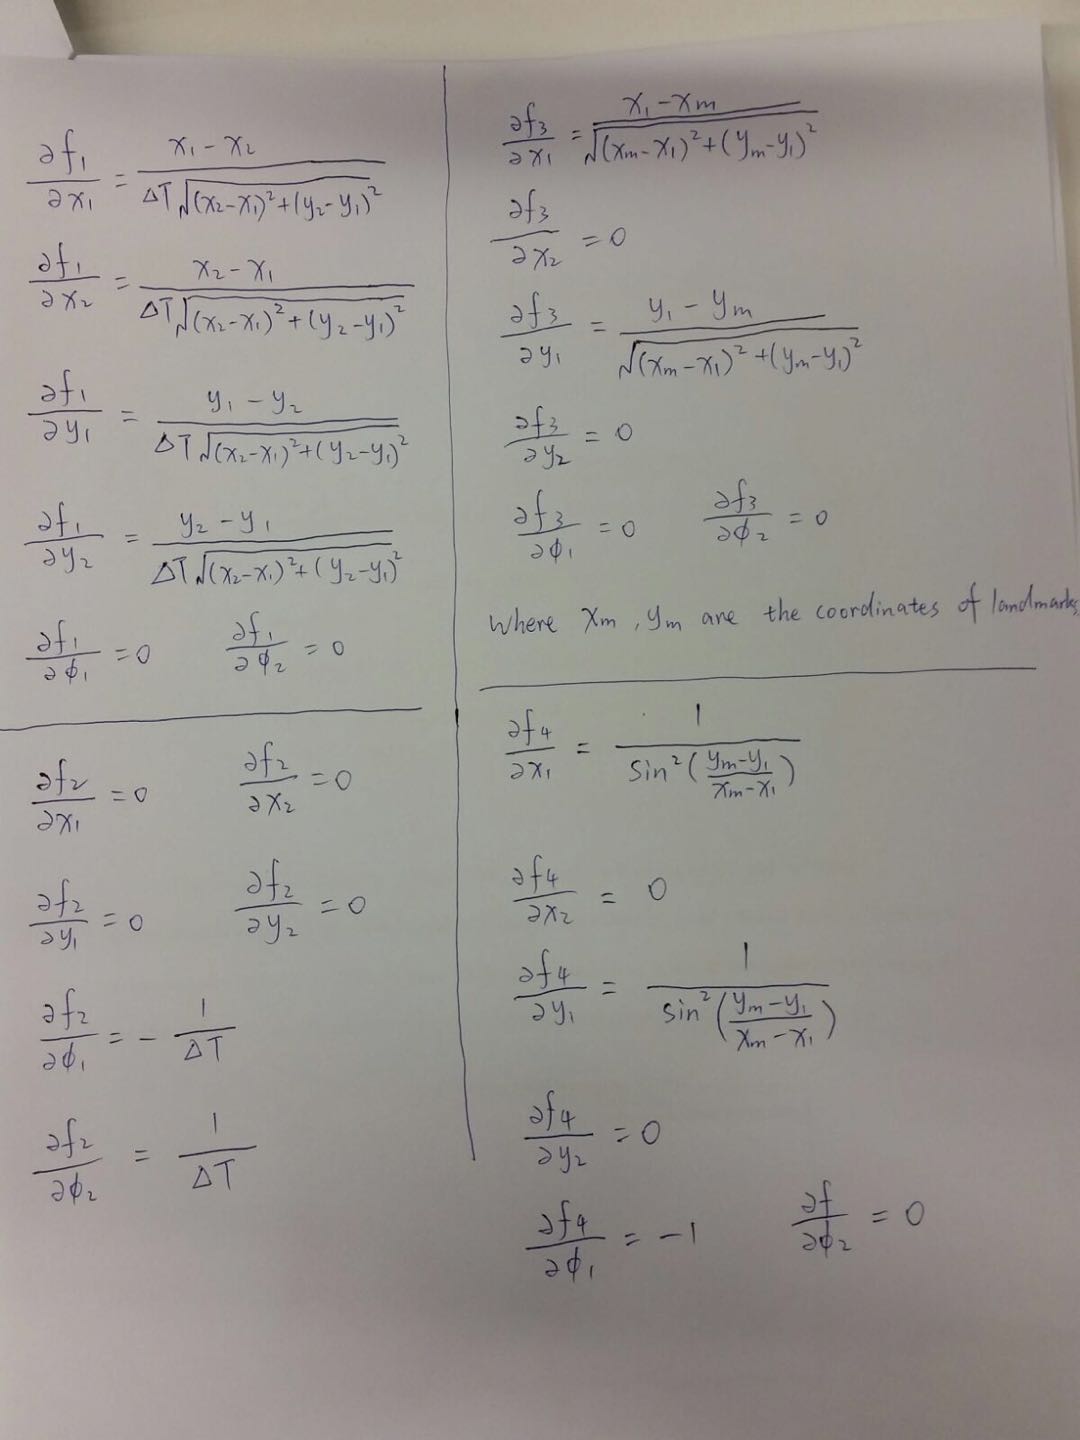 ∂f₁/∂x₁ = (x₁ - x₂) / (ΔT√((x₂-x₁)²+(y₂-y₁)²))
∂f₁/∂x₂ = (x₂ - x₁) / (ΔT√((x₂-x₁)²+(y₂-y₁)²))
∂f₁/∂y₁ = (y₁ - y₂) / (ΔT√((x₂-x₁)²+(y₂-y₁)²))
∂f₁/∂y₂ = (y₂ - y₁) / (ΔT√((x₂-x₁)²+(y₂-y₁)²))
∂f₁/∂ϕ₁ = 0 ∂f₁/∂ϕ₂ = 0
∂f₂/∂x₁ = 0 ∂f₂/∂x₂ = 0
∂f₂/∂y₁ = 0 ∂f₂/∂y₂ = 0
∂f₂/∂ϕ₁ = - 1/ΔT
∂f₂/∂ϕ₂ = 1/ΔT
∂f₃/∂x₁ = (x₁ - xm) / √((xm-x₁)²+(ym-y₁)²)
∂f₃/∂x₂ = 0
∂f₃/∂y₁ = (y₁ - ym) / √((xm-x₁)²+(ym-y₁)²)
∂f₃/∂y₂ = 0
∂f₃/∂ϕ₁ = 0 ∂f₃/∂ϕ₂ = 0
where xm, ym are the coordinates of landmarks
∂f₄/∂x₁ = 1 / sin²((ym-y₁)/(xm-x₁))
∂f₄/∂x₂ = 0
∂f₄/∂y₁ = 1 / sin²((ym-y₁)/(xm-x₁))
∂f₄/∂y₂ = 0
∂f₄/∂ϕ₁ = -1 ∂f/∂ϕ₂ = 0